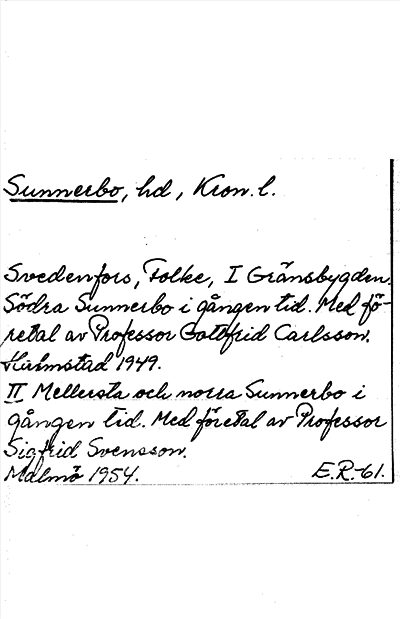 Sunnerbo, hd, Kron. l.
Svedenfors, Folke, I Gränsbygden.
Södra Sunnerbo i gången tid. Med fö-
retal av Professor Gottfrid Carlsson.
Halmstad 1949.
II Mellersta och norra Sunnerbo i
gången tid. Med företal av Professor
Sigfrid Svensson.
Malmö 1954. E.R.-61.